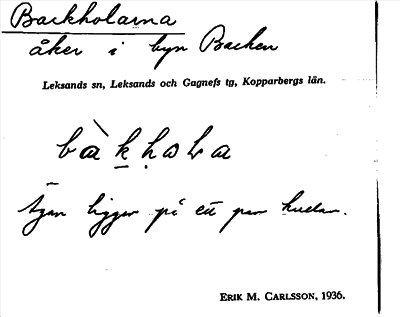 Backholarna
åker i byn Backen
Leksands sn, Leksands och Gagnefs tg, Kopparbergs län.
bàkhoLa
ligger på ett par kullar.
ERIK M. CARLSSON, 1936.